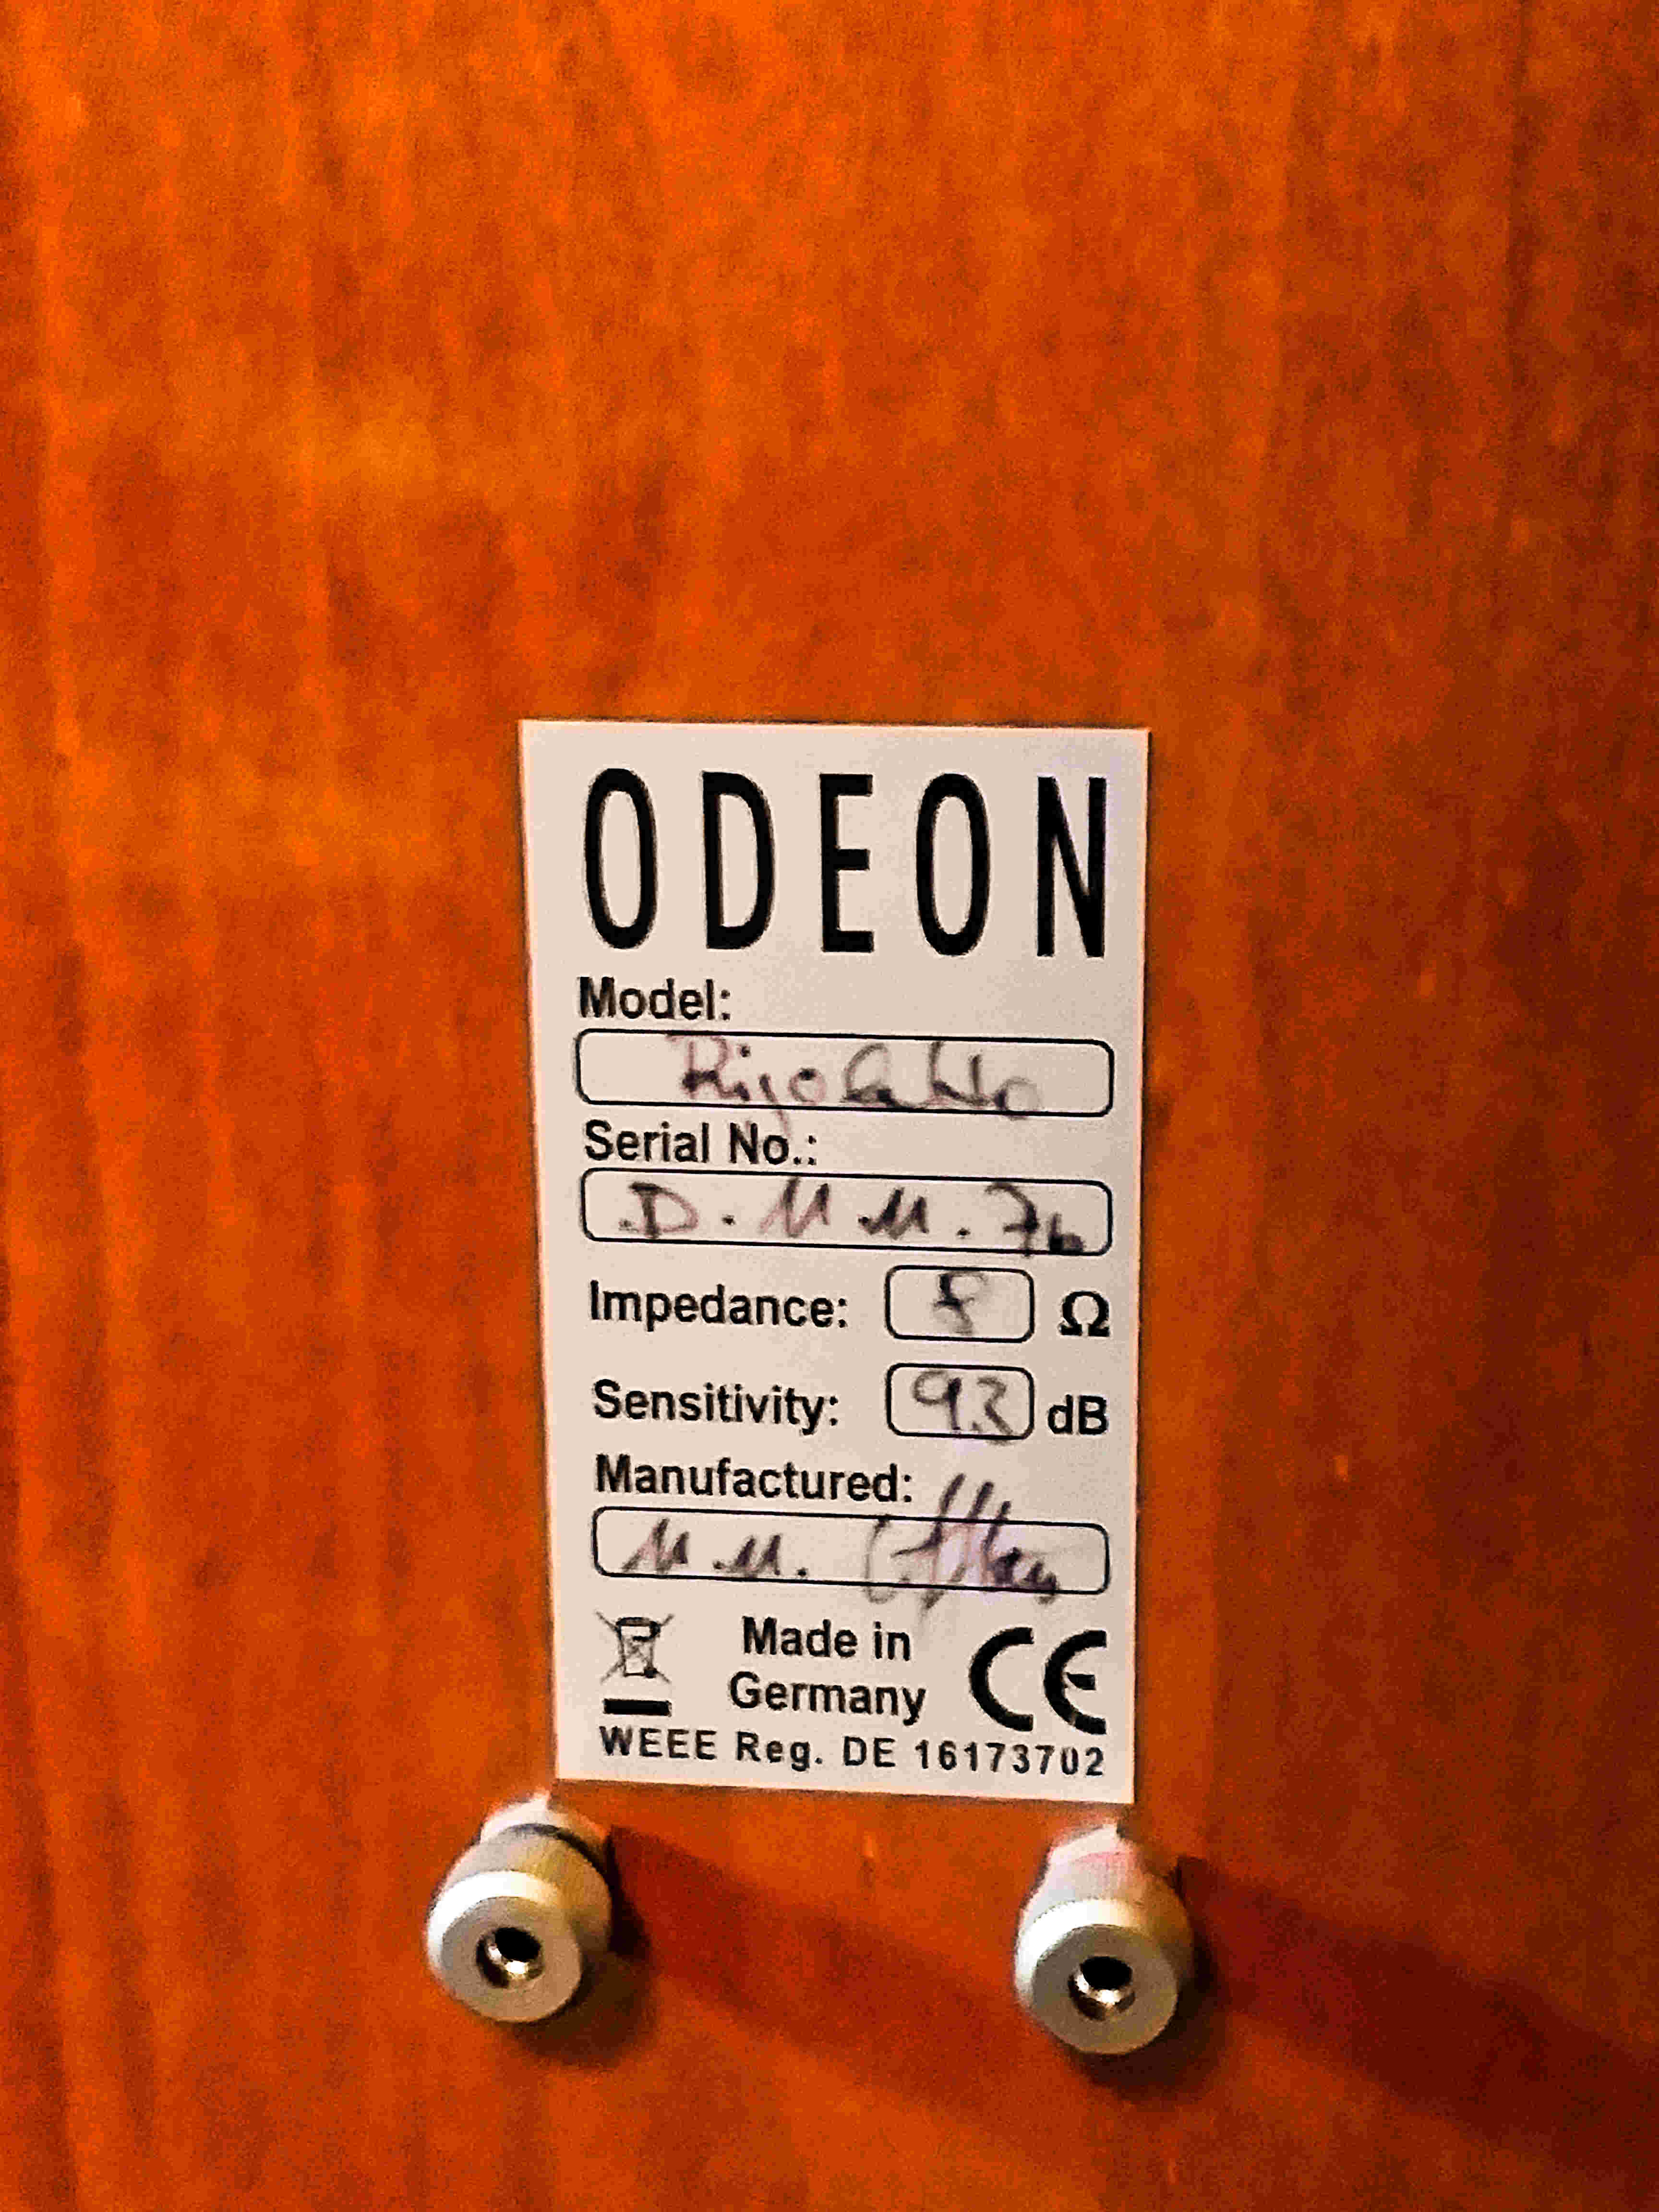 ODEON
Model:
Rigoletto
Serial No.:
Impedance: 8 Ω
Sensitivity: 93 dB
Manufactured:
Made in
Germany
CE
WEEE Reg. DE 16173702